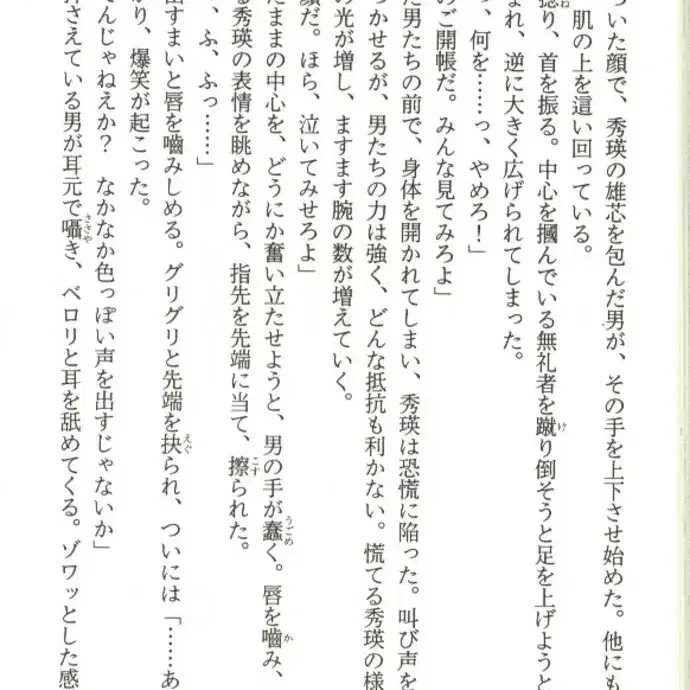 ついた顔で、秀瑛の雄芯を包んだ男が、その手を上下させ始めた。他にも
肌の上を這い回っている。
捻り、首を振る。中心を摑んでいる無礼者を蹴り倒そうと足を上げようと
まれ、逆に大きく広げられてしまった。
っ、何を……っ、やめろ！」
のご開帳だ。みんな見てみろよ」
た男たちの前で、身体を開かれてしまい、秀瑛は恐慌に陥った。叫び声を
つかせるが、男たちの力は強く、どんな抵抗も利かない。慌てる秀瑛の様
の光が増し、ますます腕の数が増えていく。
顔だ。ほら、泣いてみせろよ」
たままの中心を、どうにか奮い立たせようと、男の手が蠢く。唇を嚙み、
る秀瑛の表情を眺めながら、指先を先端に当て、擦られた。
、ふ、ふっ……」
出すまいと唇を嚙みしめる。グリグリと先端を抉られ、ついには「……あ
がり、爆笑が起こった。
てんじゃねえか？　なかなか色っぽい声を出すじゃないか」
押さえている男が耳元で囁き、ベロリと耳を舐めてくる。ゾワッとした感